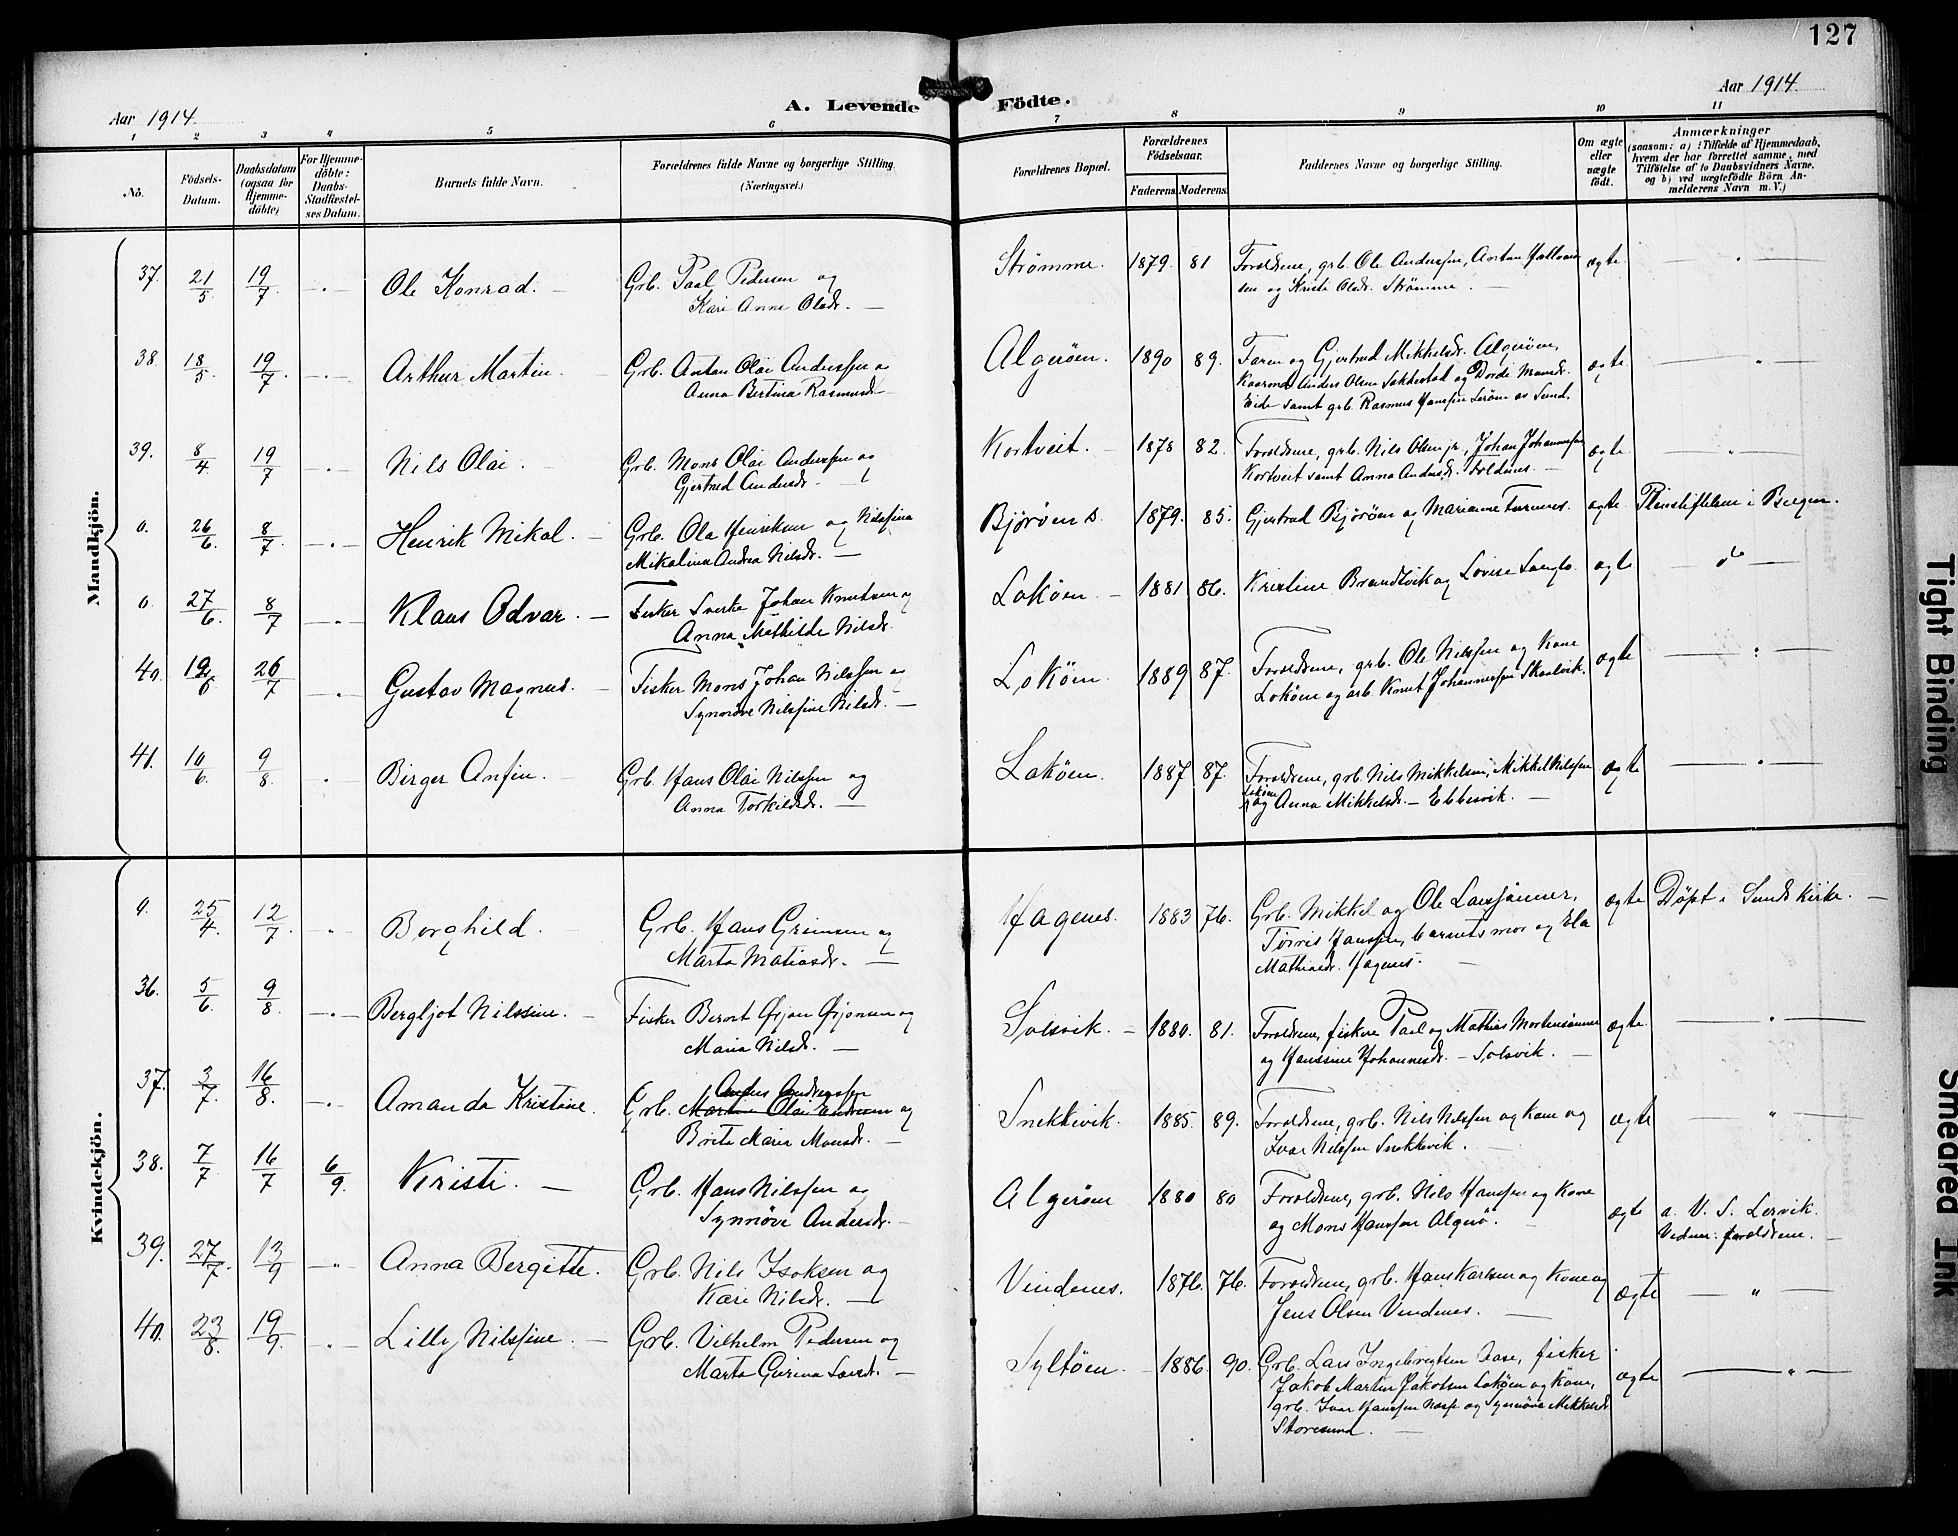 127
Aar 1914.
A. Levende Födte.
Aar 1914
1 2 3 4 5 6 7 8 9 10 11
No.
Födsels-Datum.
Daabsdatum (ogsaa for Hjemme-döbte)
For Hjemme-döbte: Daabs-Stadfæstel-ses Datum.
Barnets fulde Navn.
Forældrenes fulde Navne og borgerlige Stilling. (Næringsvei.)
Forældrenes Bopæl.
Forældrenes Födselsaar.
Faderens. Moderens.
Faddernes Navne og borgerlige Stilling.
Om ægte eller uægte födt.
Anmærkninger
(saasom: a) i Tilfælde af Hjemmedaab, hvem der har forrettet samme, med Tilföielse af to Daabsvidners Navne, og b) ved uægtefödte Börn An-melderens Navn m. V.)
Mandkjön.
37. 21/5 19/7 - " - Ole Konrad. Grb. Paal Pedersen og Strømme. 1879. 81 Forældrene, grb. Ole Anderssen, Anton ægte "
Kari Anna Olsdr. — sen og Kristi Olsdr. Strømme. —
38. 18/5 19/7. - " - Arthur Martin. Grb. Anton Olai Anderssen og Algerøen. 1890 89. Faren og Gjertrud Mikkelsdr. Algerøen, ægte "
Anna Bertina Rasmusd. Anders Olsen og Dorde Monsd.
Eide samt grb. Rasmus Hanssen Lerøen av Sund.
39. 8/4 19/7 - " - Nils Olai. Grb. Mons Olai Anderssen og Kortveit. — 1878 82. Forældrene, grb. Nils Olsen jr, Johan Johannessen ægte "
Gjertrud Andersd. Kortveit samt Anna Andersd. —
0. 26/6 8/7 - " - Henrik Mikal. — Grb. Ola Henriksen og Nilsina Bjørøen 1879. 85. Gjertrud Bjørøen og Marianne Turenes. ægte Pleiestiftelsen i Bergen.
Mikalina Andrea Nilsdr. —
0. 27/6 8/7 - " - Klaus Odvar. — Fisker Sverke Johan Knutsen og Lokøen. — 1881 86. Kristine Brandtvik og Lovise ægte do
Anna Mathilde Nilsdr.
40. 12/6 26/7 - " - Gustav Magnus. — Fisker Mons Johan Nilssen og Lokøen. 1889 87. Forældrene, grb. Ole Nilssen og Kone ægte "
Synnøve Nilssine Nilsdr. — Lokøen og grb. Knut Johannessen Skaalvik.
41. 10/6 9/8 " Birger Anfin. Grb Hans Olai Nilssen og Lokøen. 1887 87. Forældrene, grb. Nils Mikkelsen, Mikkel Nilssen ægte "
Anna Torkildsdr. — Lokøen og Anna Mikkelsdr. — Ebbesvik. —
Kvindekjön.
0. 25/4 12/7 " Borghild. Grb. Hans Grimsen og Hagenes. 1883 76. Grb. Mikkel og Ole Larssønner, ægte Døpt i Sunds Kirke. —
Marta Matiasdr. — Hanssen, barnets mor og Ela
Mathiasdr. Hagenes. —
36. 5/6 9/8 - " - Bergljot Nilssine. — Fisker Berent Ørjan Ørjansen og Solsvik. — 1880. 81. Forældrene, fiskere Paal og Mathias Mortensønner ægte "
Maria Nilsd. — og Hanssine Johannesdr. — Solsvik. —
37. 3/7. 16/8. - " - Amanda Kristine. Grb. Martin Olai Andersen og Snekkevik. 1885. 89. Forældrene, grb. Nils Nilssen og Kone og ægte "
Anfins Andreassen
Brita Maria Monsdr. — Ivar Nilssen Snekkevik.
38. 7/7 16/7 6/9. Kristi. — Grb. Hans Nilssen og Algerøen 1880 80 Forældrene, grb. Nils Hanssen og Kone ægte a. V. S. Lervik.
Synnøve Andersdr. — og Mons Hanssen Algerø. — Vidner: forældrene. —
39. 27/7. 13/9 - " - Anna Bergitte. Grb. Nils Isaksen og Vindenes. 1876. 76. Forældrene, grb. Hans Karlsen og Kone og ægte "
Kari Nilsdr. — Jens Olsen Vindenes. —
40. 23/8. 19/9. " Lilly Nilssine. — Grb. Vilhelm Pedersen og Syltøen. 1886. 90. Grb. Lars Ingebrigtsen Aase, fisker ægte "
Marta Gurina Larsd. — Jakob Martin Jakobsen Lokøen og Kone,
grb. Ivar Hanssen og Synnøve Mikkelsdr.
Storesund. —
Tight Binding
Smeared Ink